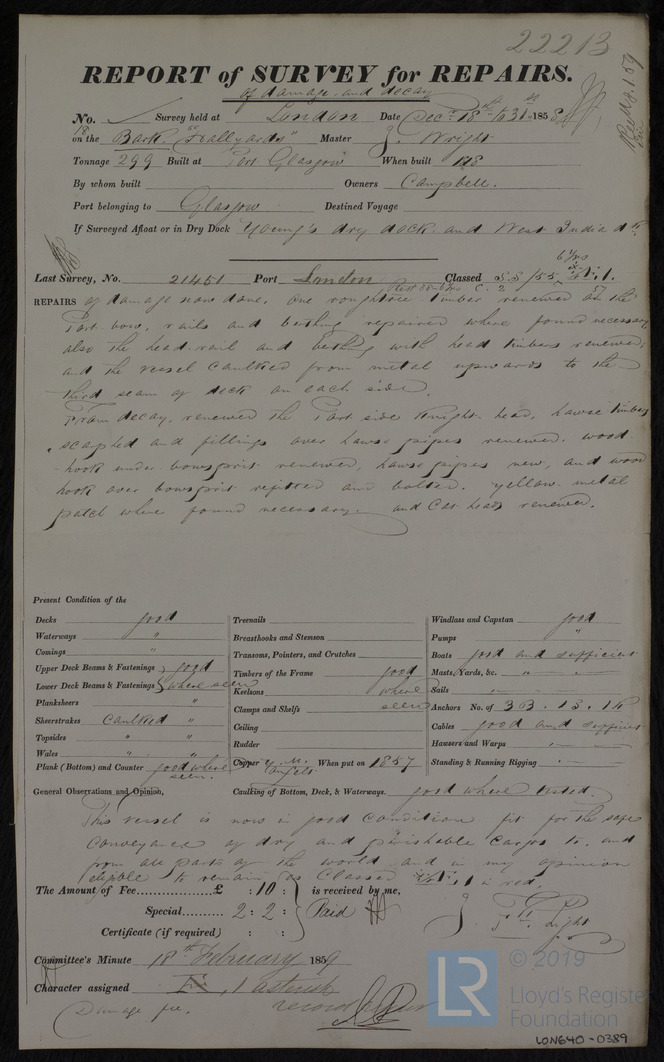 22213
REPORT of SURVEY for REPAIRS.
of damage and decay
No. Survey held at London Date Decr 18th 31st 1858
on the Bark "Hallyards" Master J. Wright
Tonnage 299 Built at Port Glasgow When built
By whom built Owners Campbell.
Port belonging to Glasgow Destined Voyage
If Surveyed Afloat or in Dry Dock Young's dry dock and West India dk
Last Survey, No. 21451 Port London Classed
REPAIRS of damage now done. One roughtree timber renewed on the
Port bow, rails and berthing repaired where found necessary
also the head rail and berthing with head timbers renewed,
and the vessel caulked from metal upwards to the
third seam of deck on each side.
From decay, renewed the Port side Knight-head, hawse timbers
scarphed and fillings over hawse pipes renewed. wood
hook under bowsprit renewed, hawse pipes new, and wood
hook over bowsprit refitted and bolted. yellow metal
patch where found necessary. and Cat heads renewed.
Present Condition of the
Decks good
Waterways "
Comings "
Upper Deck Beams & Fastenings good
Lower Deck Beams & Fastenings where seen
Plansheers "
Sheerstrakes Caulked "
Topsides " "
Wales " "
Plank (Bottom) and Counter good where seen.
Treenails
Breasthooks and Stemson
Transoms, Pointers, and Crutches
Timbers of the Frame good
Keelsons where
Clamps and Shelfs seen
Ceiling
Rudder
Copper Y. M. When put on 1857
Windlass and Capstan good
Pumps "
Boats good and sufficient
Masts, Yards, &c. "
Sails
Anchors No. of 3B. 1S. 1K
Cables good and sufficient
Hawsers and Warps
Standing & Running Rigging
General Observations and Opinion, Caulking of Bottom, Deck, & Waterways. good where tested.
This vessel is now in good condition fit for the safe
conveyance of dry and perishable Cargo to and
from all parts of the world and in my opinion
eligible to remain as Classed in red.
The Amount of Fee £ : 10 : is received by me,
Special 2 : 2 : Paid
Certificate (if required) : :
Light
Committee's Minute 18th February 1859
Character assigned
Damage fee.
LR
© 2019
Lloyd's Register
Foundation
LON640-0389